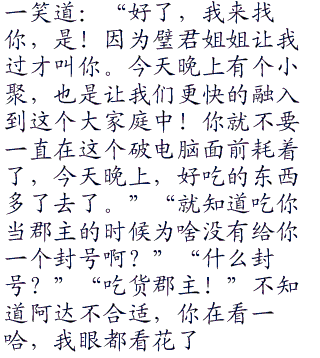 一笑道：“好了，我来找
你，是！因为璧君姐姐让我
过才叫你。今天晚上有个小
聚，也是让我们更快的融入
到这个大家庭中！你就不要
一直在这个破电脑面前耗着
了，今天晚上，好吃的东西
多了去了。”“就知道吃你
当郡主的时候为啥没有给你
一个封号啊？”“什么封
号？”“吃货郡主！”不知
道阿达不合适，你在看一
哈，我眼都看花了